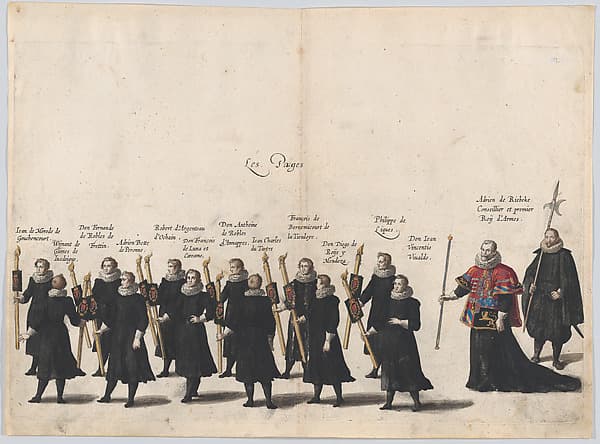 Les Pages
Jean de Merode de
Gouchencourt.
Wijnant de
Gaines de
Don Fernande
de Robles de
Trettin.
Adrien Bette
de Peronne.
Robert d'Argenteau
d'Ochain.
Don François
de Luna et
Carcame.
Don Anthoine
de Robles
d'Annappes.
Jean Charles
du Tartre
François de
Bernemicourt de
la Tieuloye.
Don Diego de
Roijs y
Mendoza.
Philippe de
Liques.
Don Jean
Vincentio
Vivaldo.
Adrien de Riebeke
Conseillier et premier
Roij d'Armes.